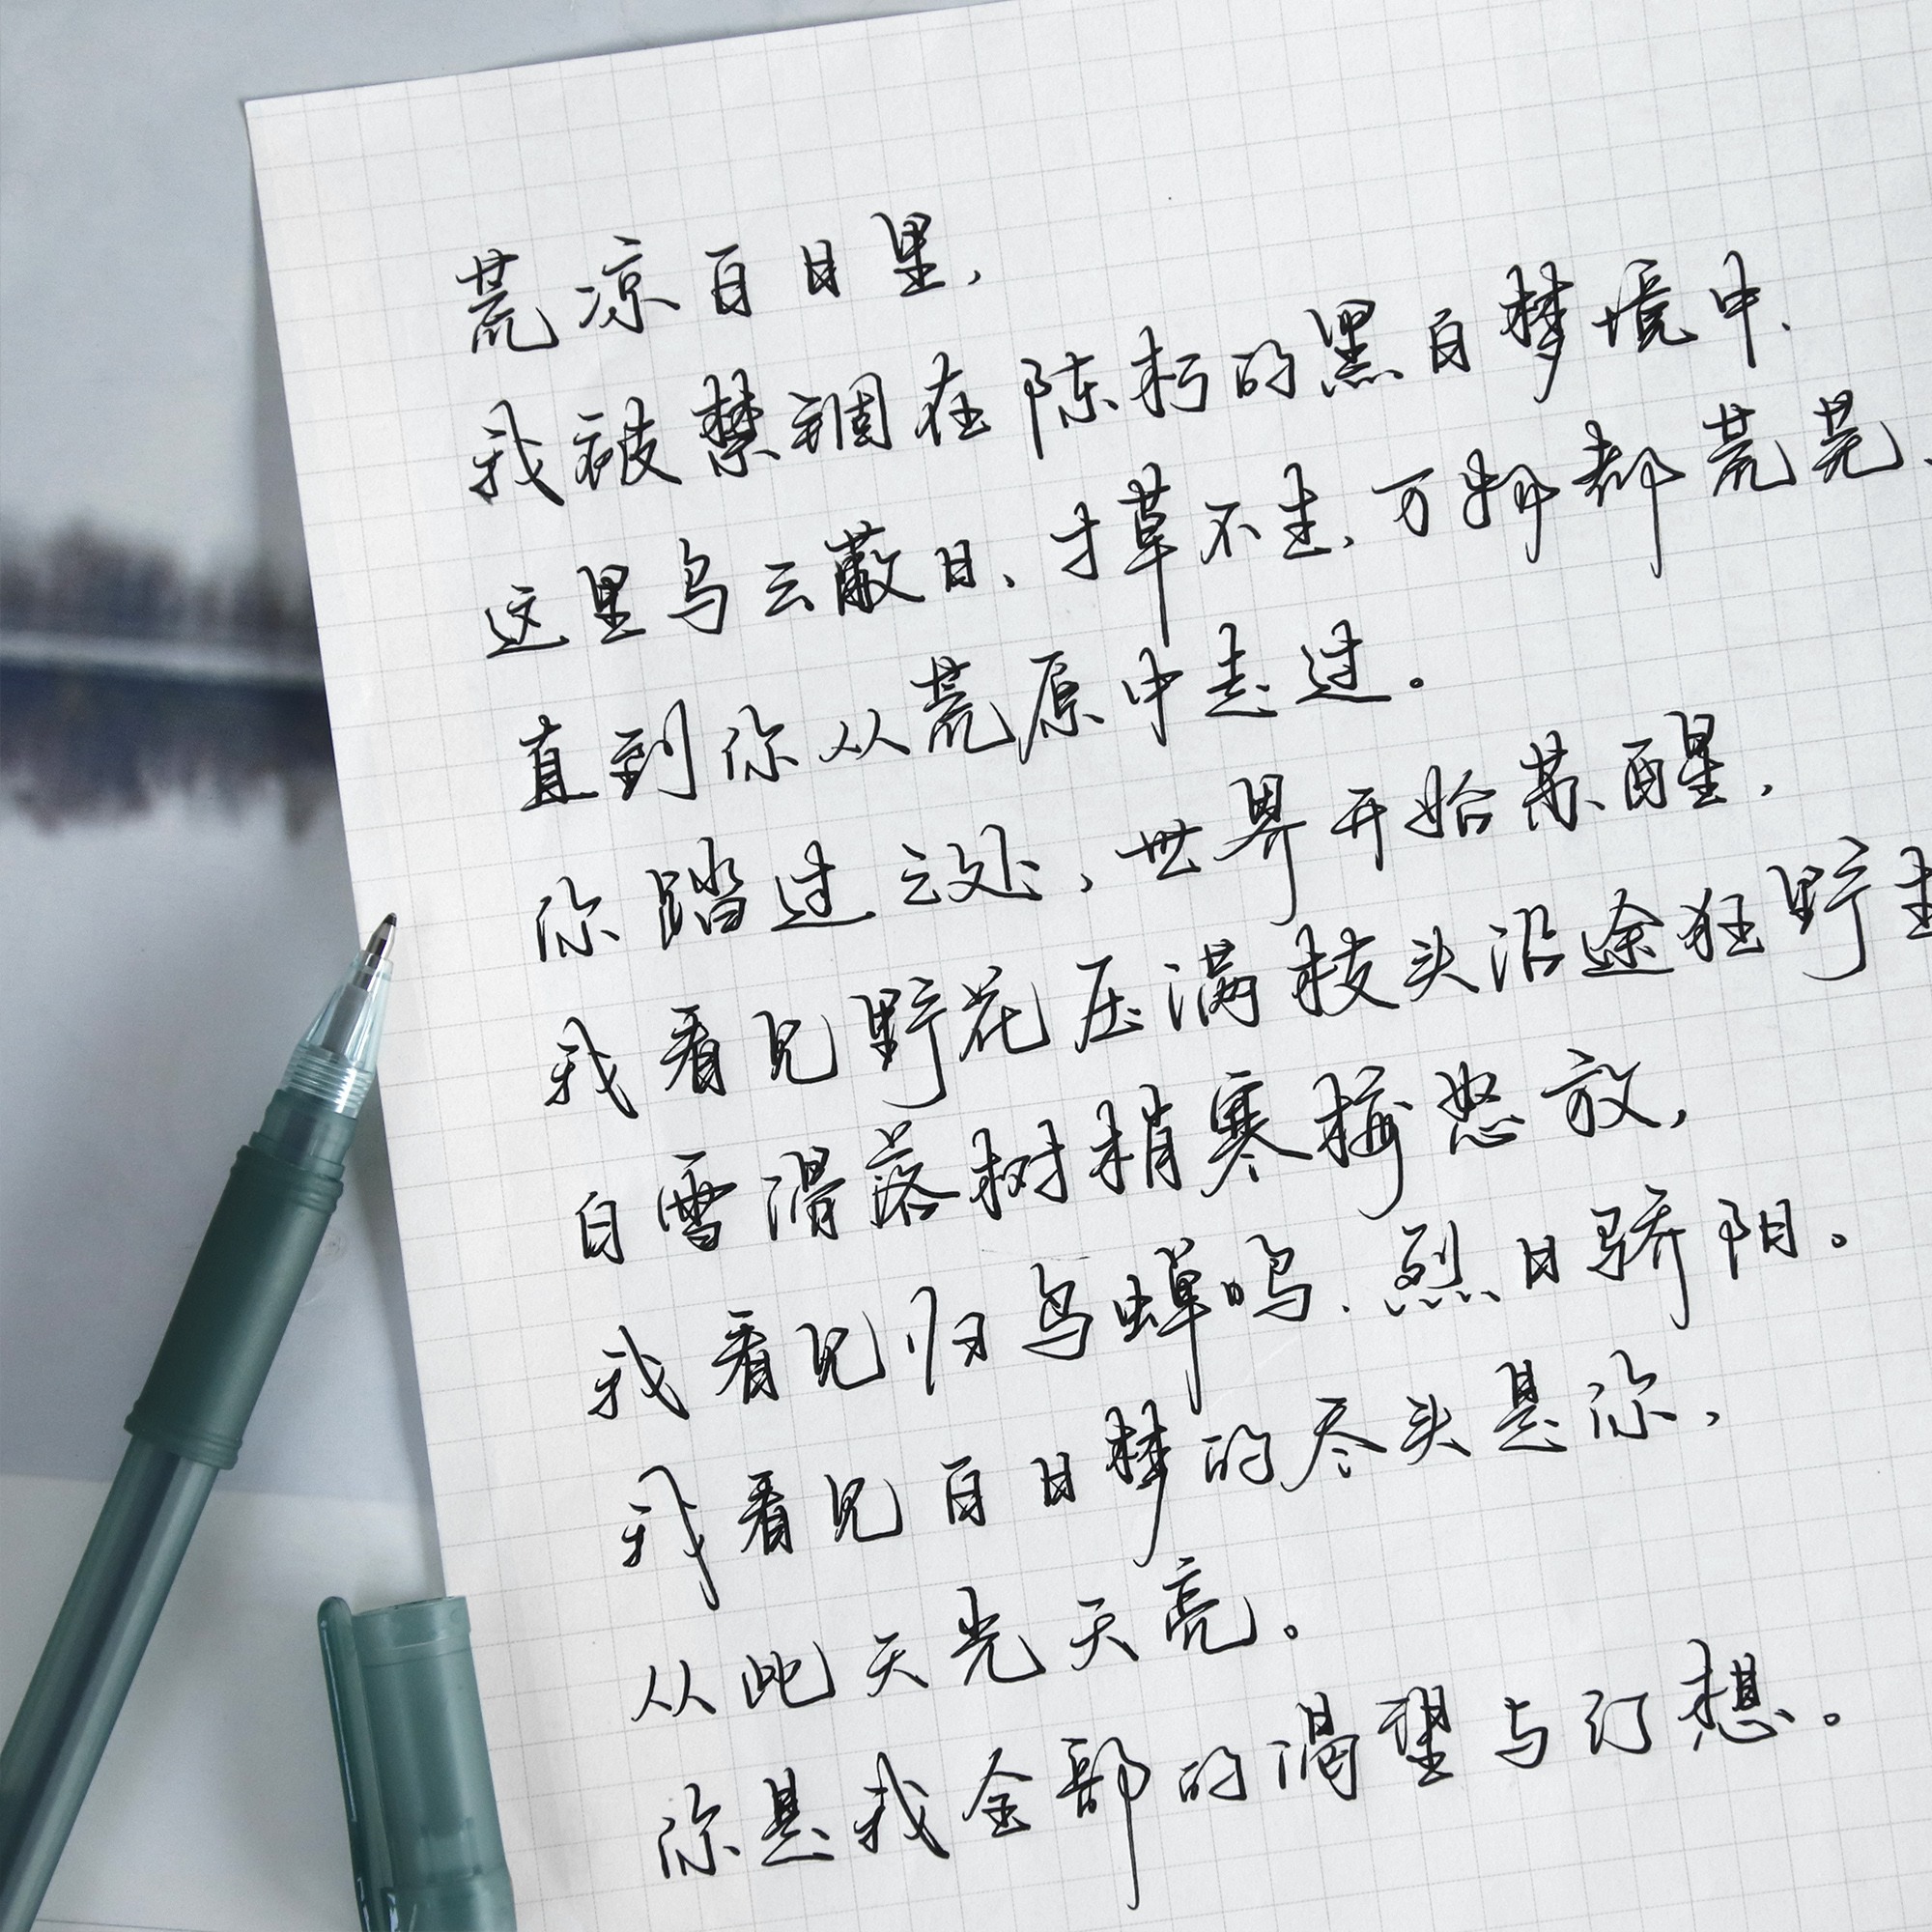 荒凉百日里，
我被禁锢在陈朽的黑白梦境中、
这里乌云蔽日、寸草不生，万物都荒芜、
直到你从荒原中走过。
你踏过之处，世界开始苏醒，
我看见野花压满枝头沿途狂野生
白雪滑落树梢寒梅怒放，
我看见归鸟蝉鸣、烈日骄阳。
我看见百日梦的尽头是你，
从此天光大亮。
你是我全部的渴望与幻想。